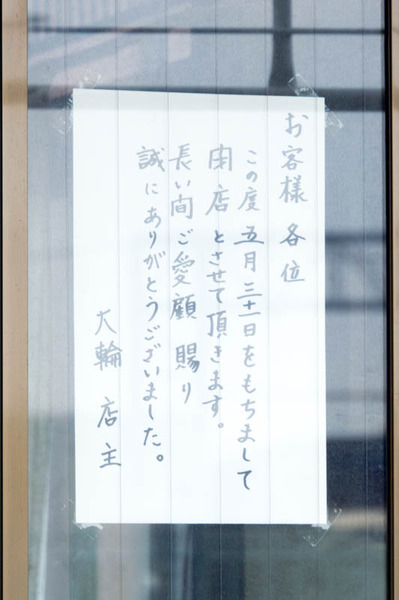 お客様 各位
この度 五月三十一日をもちまして
閉店とさせて頂きます。
長い間ご愛顧賜り
誠にありがとうございました。
大輪 店主